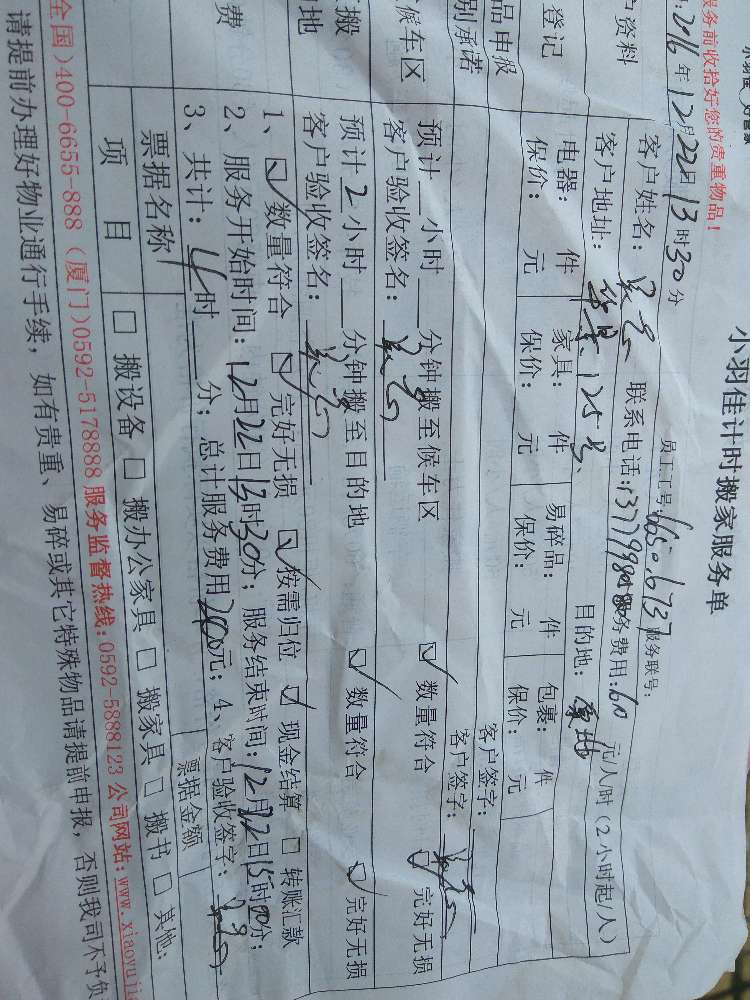 小羽佳计时搬家服务单
员工工号:6650.6737 服务联号:
服务前收拾好您的贵重物品!
2016年12月22日13时30分
户资料
客户姓名: 联系电话: 服务费用:60 元/人时(2小时起/人)
客户地址: 125号 目的地:
登记
电器: 件 家具: 件 易碎品: 件 包裹: 件
保价: 元 保价: 元 保价: 元 保价: 元
品申报 客户签字:
别承诺 客户签字:
候车区
预计 小时 分钟搬至候车区 ☑ 数量符合 ☑ 完好无损
客户验收签名:
搬
地
预计2小时 分钟搬至目的地 ☑ 数量符合 ☑ 完好无损
客户验收签名:
费
1、☑ 数量符合 ☑ 完好无损 ☑ 按需归位 ☑ 现金结算 □ 转账汇款
2、服务开始时间:12月22日13时30分;服务结束时间:12月22日15时分;
3、共计:4时 分;总计服务费用240元;4、客户验收签字:
票据名称 票据金额
项 目 □ 搬设备 □ 搬办公家具 □ 搬家具 □ 搬书 □ 其他:
全国)400-6655-888 (厦门)0592-5178888 服务监督热线:0592-5888123 公司网站:www.xiaoyujia
请提前办理好物业通行手续,如有贵重、易碎或其它特殊物品请提前申报,否则我司不予负